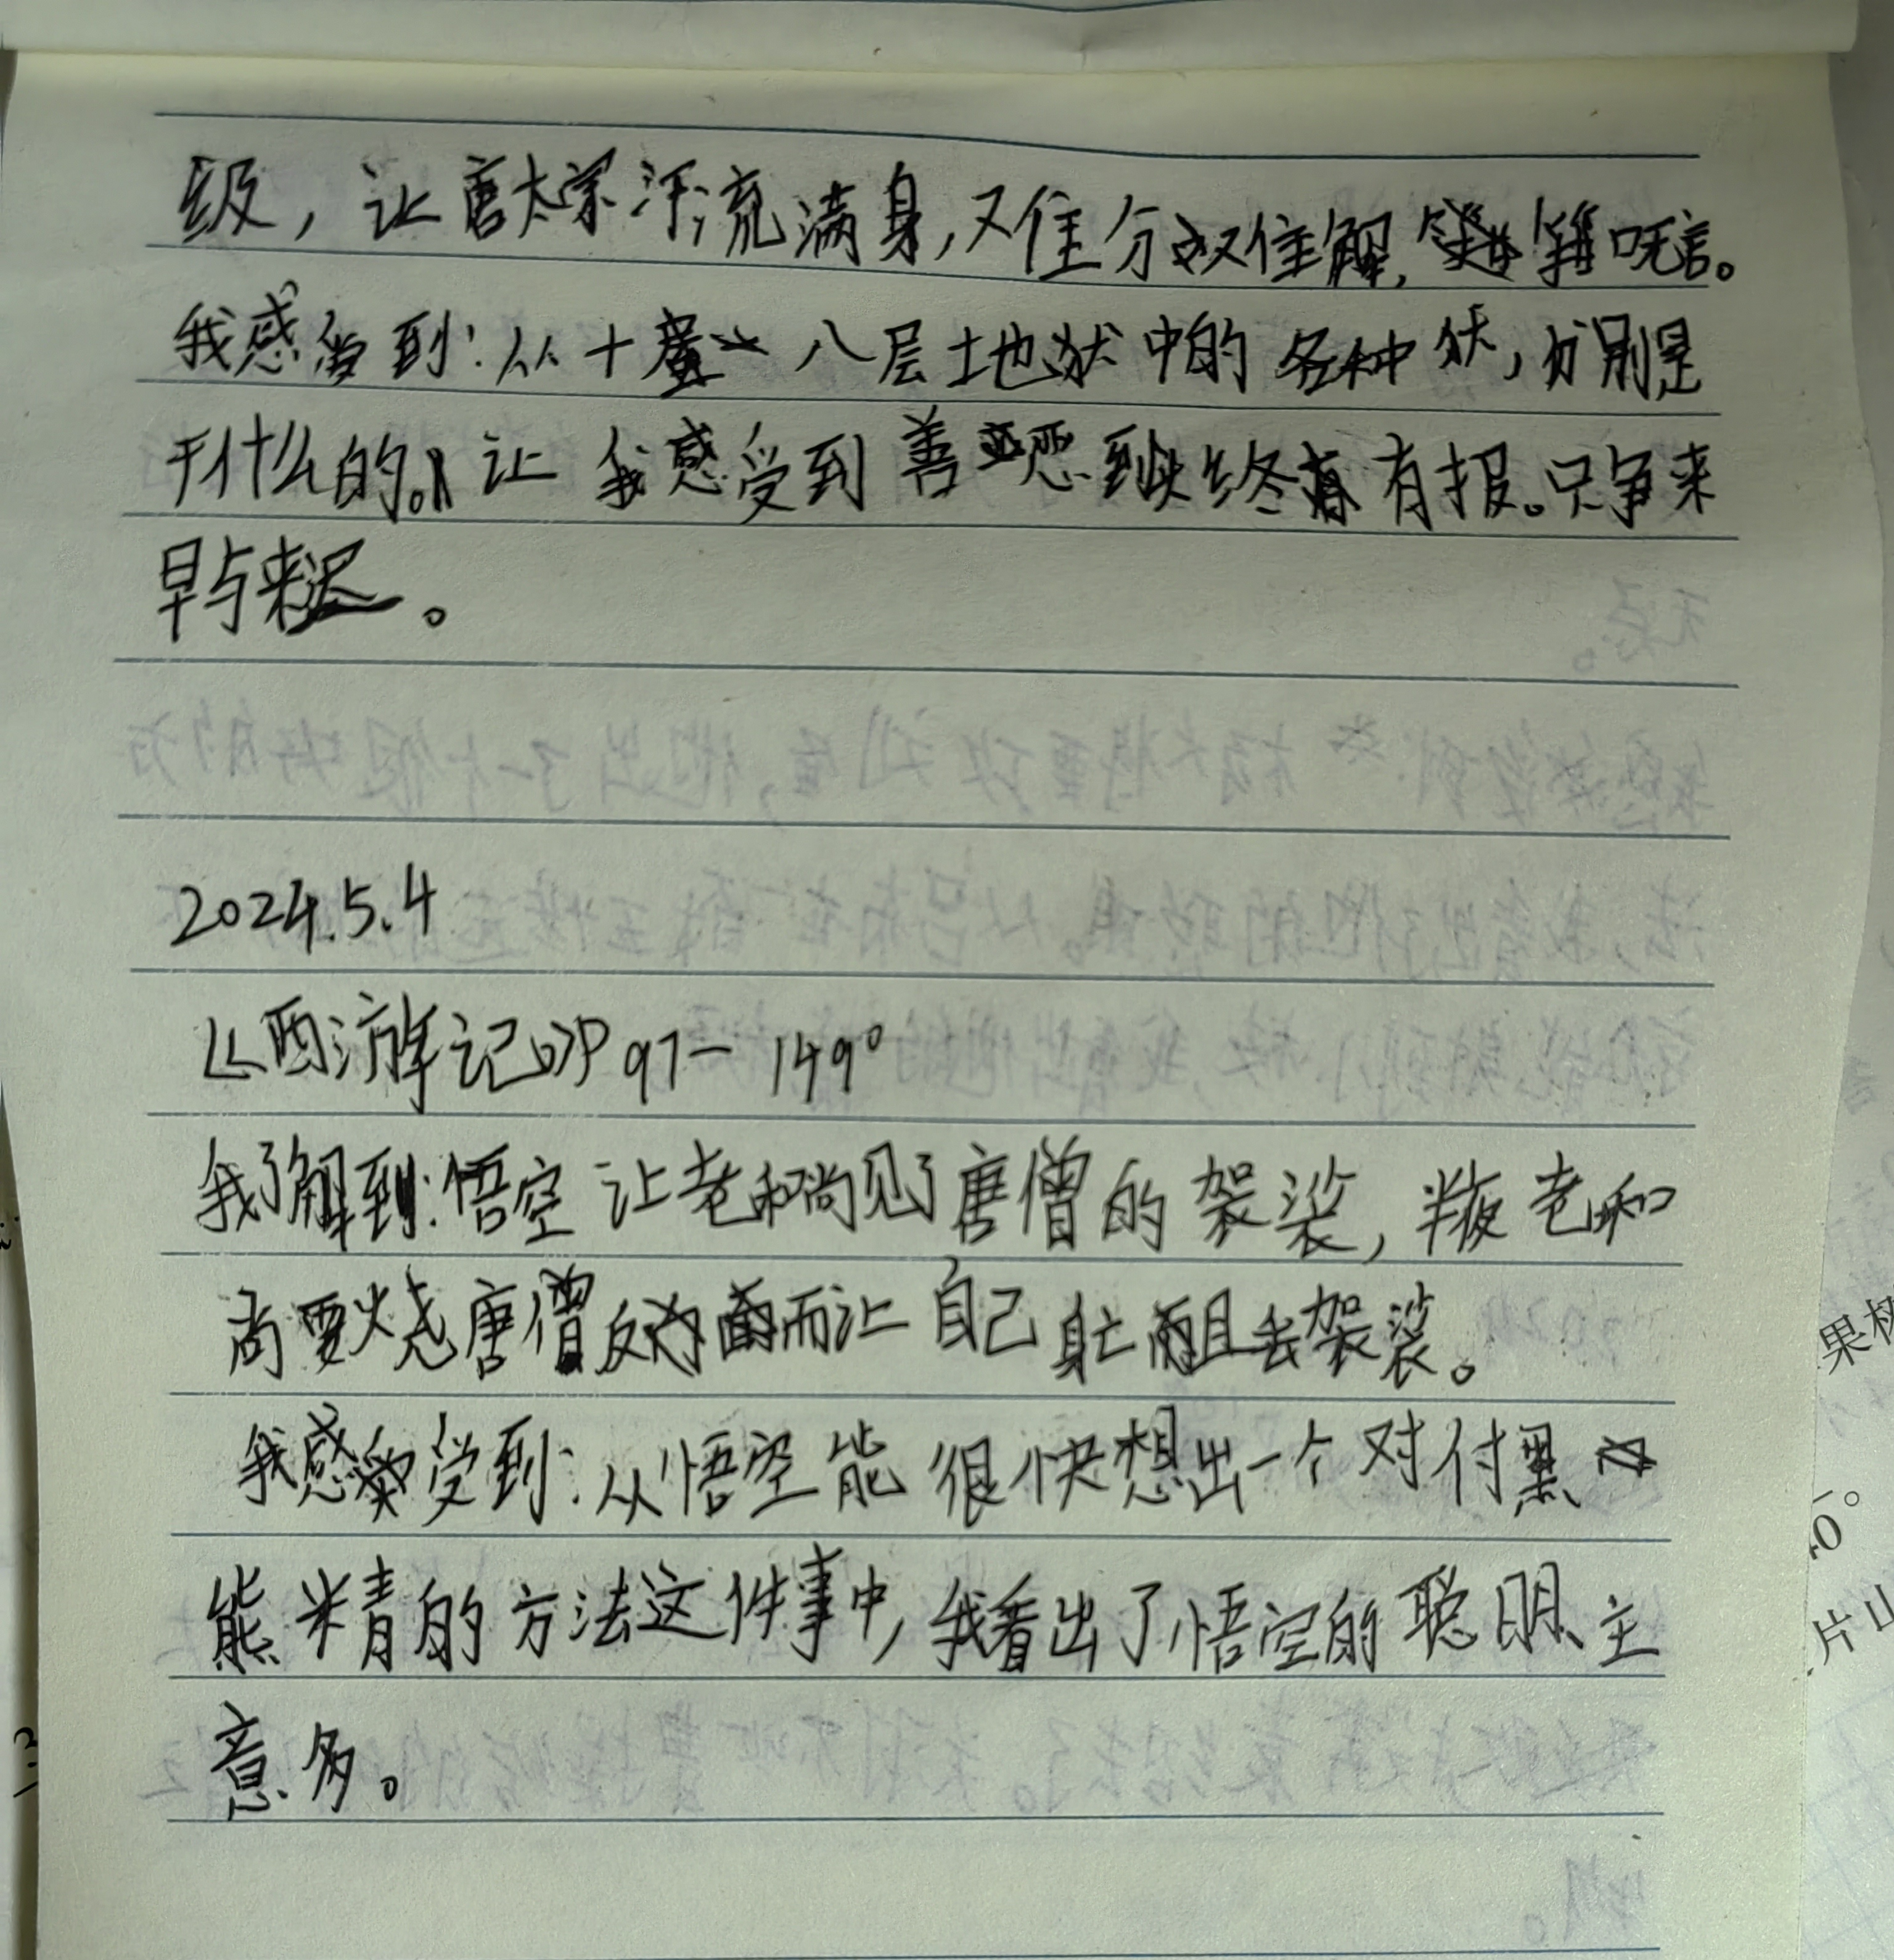 级，让唐太宗汗流满身，又住分又住解，
我感 到：从十 八层地狱中的各种狱，分别是
干什么的。让我感受到善恶到头终有报。只争来
早与来迟。
2024.5.4
《西游记》P97—149。
我了解到：悟空让老和尚见了唐僧的袈裟，半夜老和
尚要烧唐僧反而让自己身亡而且丢袈裟。
我感受到：从悟空能很快想出一个对付黑
熊精的方法这件事中，我看出了悟空的聪明、主
意多。
果树
片山